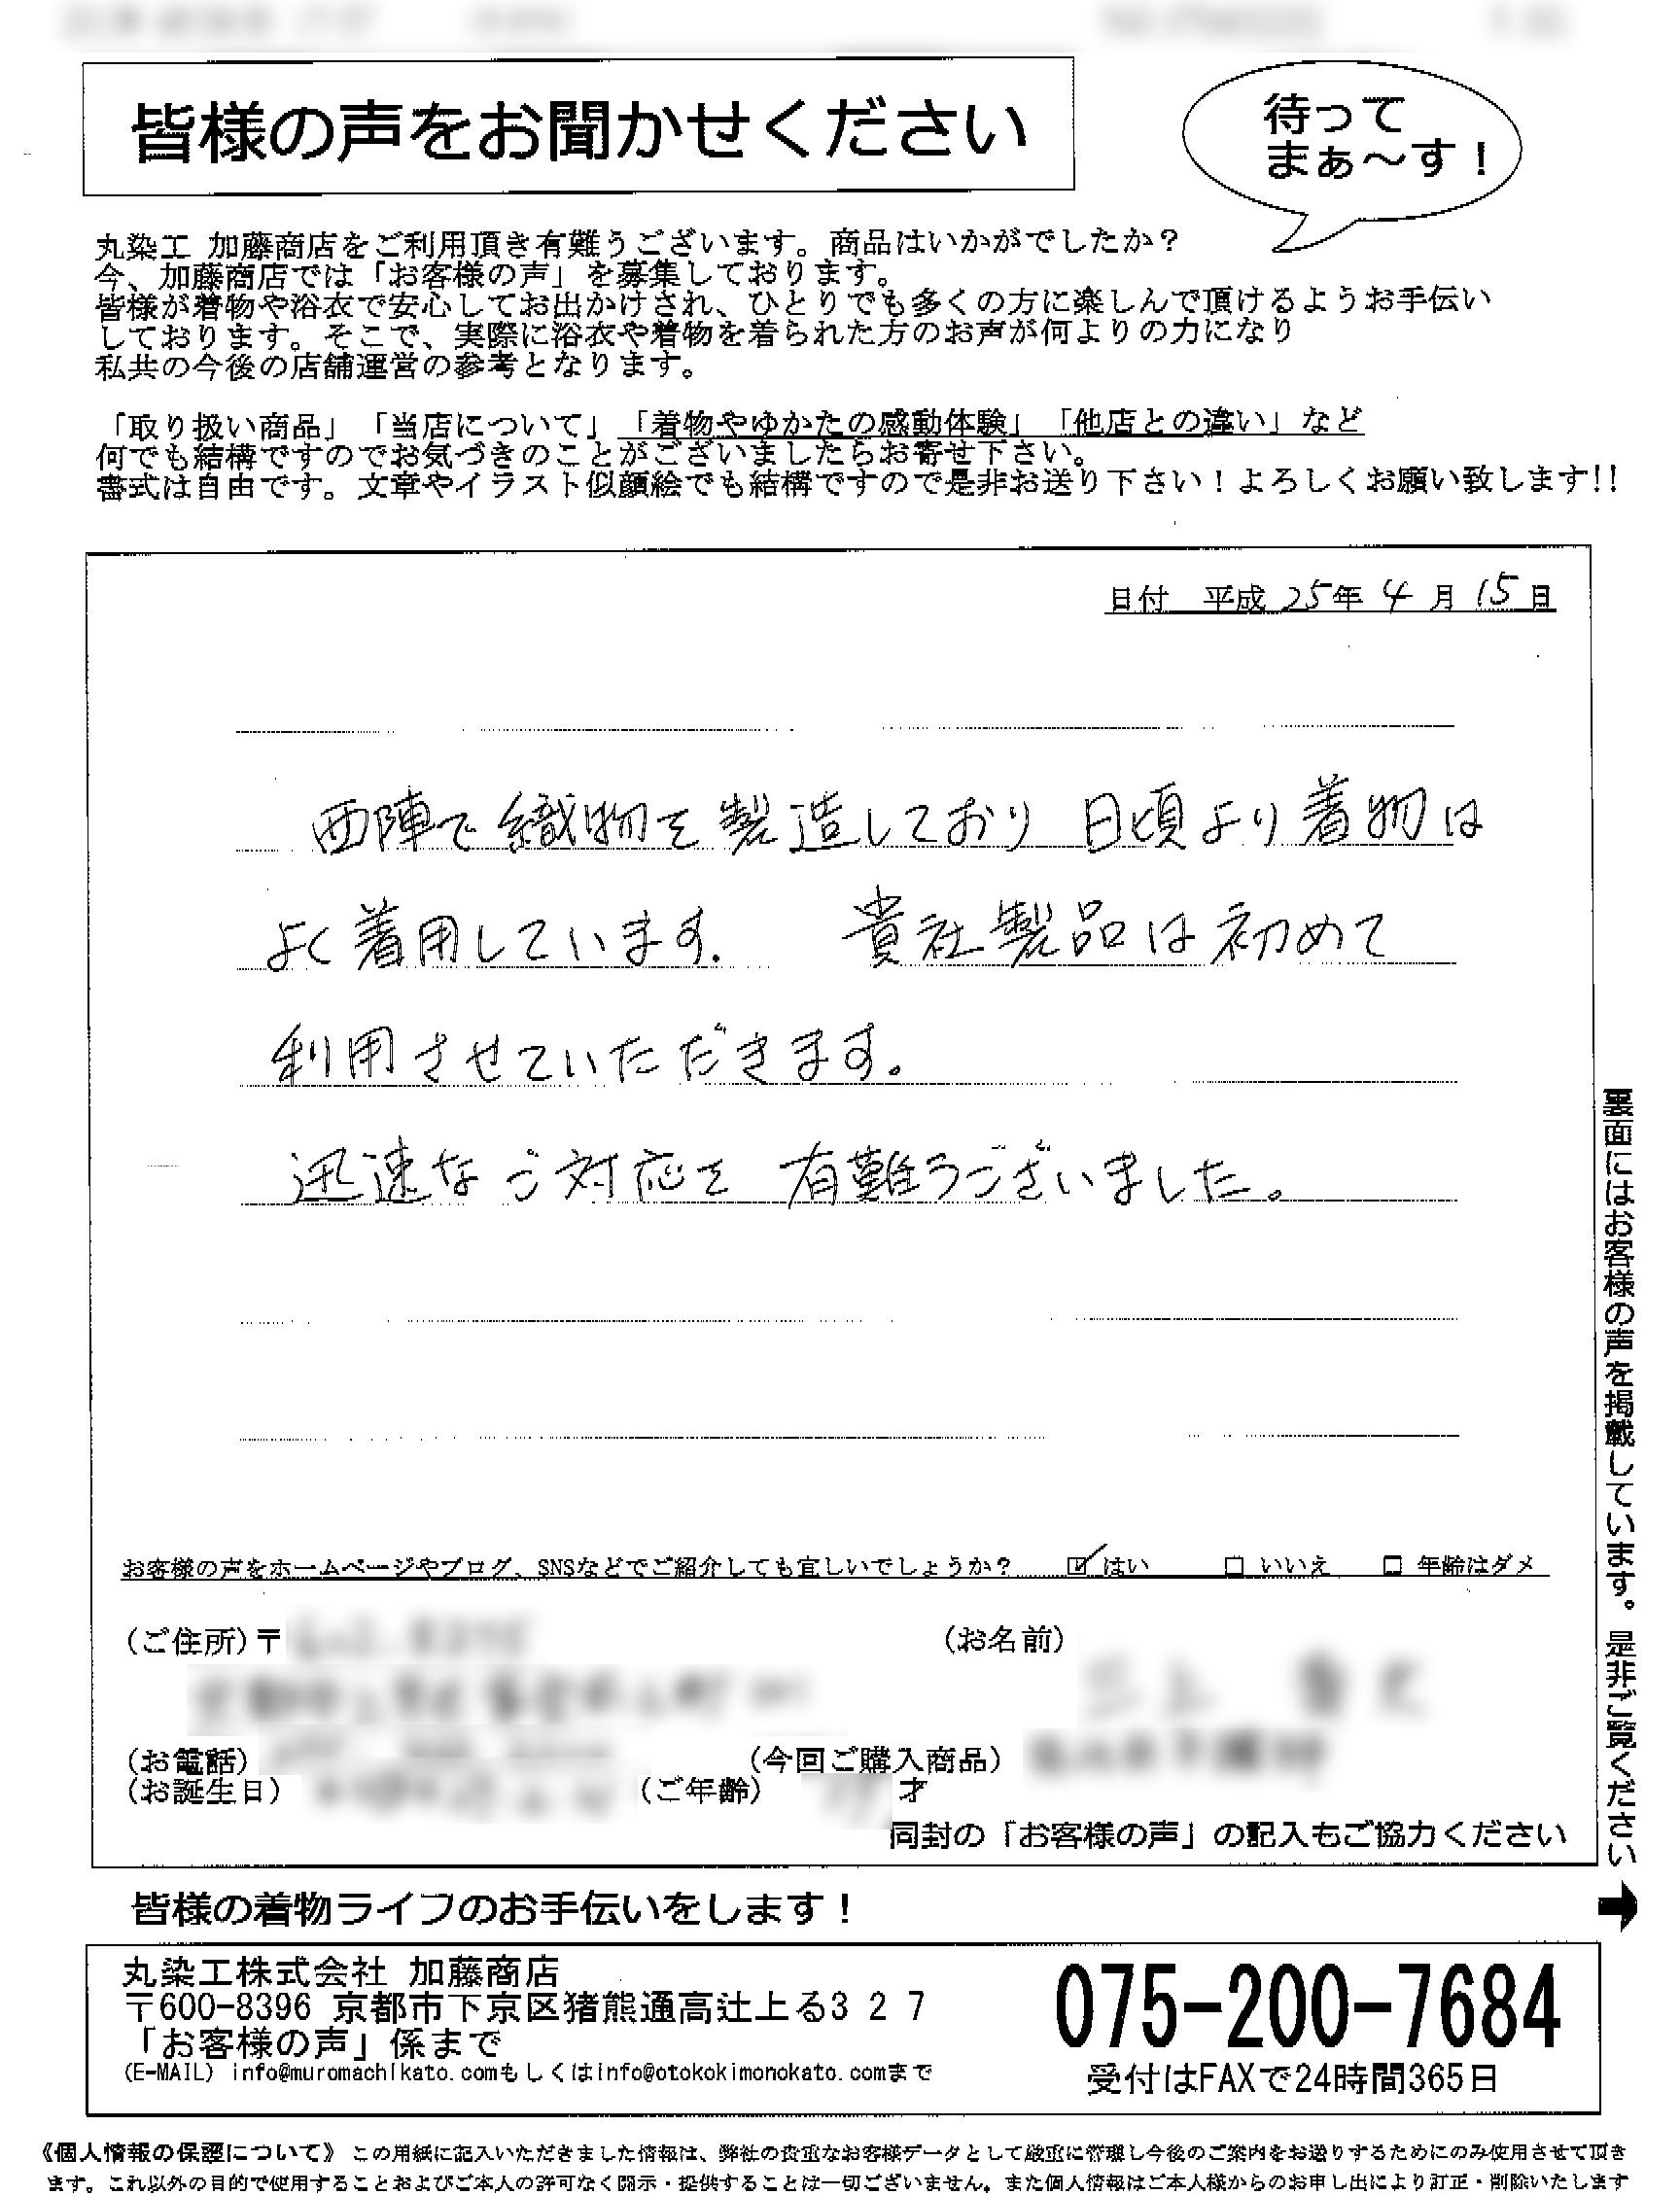 皆様の声をお聞かせください
待って
まぁ～す！
丸染工 加藤商店をご利用頂き有難うございます。商品はいかがでしたか？
今、加藤商店では「お客様の声」を募集しております。
皆様が着物や浴衣で安心してお出かけされ、ひとりでも多くの方に楽しんで頂けるようお手伝い
しております。そこで、実際に浴衣や着物を着られた方のお声が何よりの力になり
私共の今後の店舗運営の参考となります。
「取り扱い商品」「当店について」「着物やゆかたの感動体験」「他店との違い」など
何でも結構ですのでお気づきのことがございましたらお寄せ下さい。
書式は自由です。文章やイラスト似顔絵でも結構ですので是非お送り下さい！よろしくお願い致します!!
日付 平成 25年 4月 15日
西陣で織物を製造しており 日頃より着物は
よく着用しています. 貴社製品は初めて
利用させていただきます。
迅速なご対応を 有難うございました。
お客様の声をホームページやブログ、SNSなどでご紹介しても宜しいでしょうか？ ☑ はい □ いいえ □ 年齢はダメ
(ご住所) 〒
(お名前)
(お電話) (今回ご購入商品)
(お誕生日) (ご年齢) 才
同封の「お客様の声」の記入もご協力ください
裏面にはお客様の声を掲載しています。是非ご覧ください
➡
皆様の着物ライフのお手伝いをします！
丸染工株式会社 加藤商店
〒600-8396 京都市下京区猪熊通高辻上る3 2 7
「お客様の声」係まで
(E-MAIL) info@muromachikato.comもしくはinfo@otokokimonokato.comまで
075-200-7684
受付はFAXで24時間365日
《個人情報の保護について》この用紙に記入いただきました情報は、弊社の貴重なお客様データとして厳重に管理し今後のご案内をお送りするためにのみ使用させて頂き
ます。これ以外の目的で使用することおよびご本人の許可なく開示・提供することは一切ございません。また個人情報はご本人様からのお申し出により訂正・削除いたします